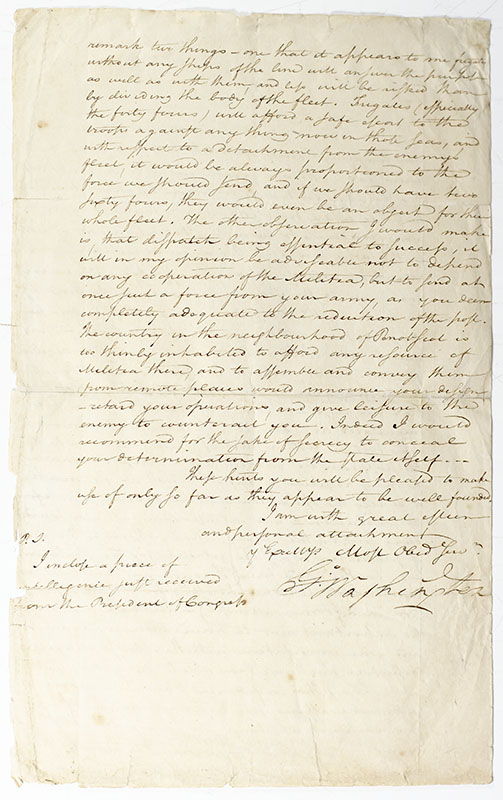 remark two things - one that it appears to me frigates
without any Ships of the line will answer the purpose
as well as with them and less will be risked than
by dividing the body of the fleet. Frigates (especially
the forty fours) will afford a safe escort to the
troops against any thing now in those seas, and
with respect to a detachment from the enemy's
fleet, it would be always proportioned to the
force we should send, and if we should have two
sixty fours, they would even be an object for their
whole fleet. The other observation I would make
is, that dispatch being essential to success, it
will in my opinion be adviseable not to depend
on any cooperation of the Militia, but to send at
once such a force from your army, as you deem
completely adequate to the reduction of the post.
The country in the neighbourhood of Penobscot is
too thinly inhabited to afford any resource of
Militia there, and to assemble and convey them
from remote places would announce your design
- retard your operations, and give leisure to the
enemy to counteract you. Indeed I would
recommend for the sake of secrecy to conceal
your determination from the state itself. - -
These hints you will be pleased to make
use of only so far as they appear to be well founded
I am with great esteem
and personal attachment
Yr Excellys Most Obed Serv
Go Washington
P. S.
I inclose a piece of
intelligence just received
from the President of Congress